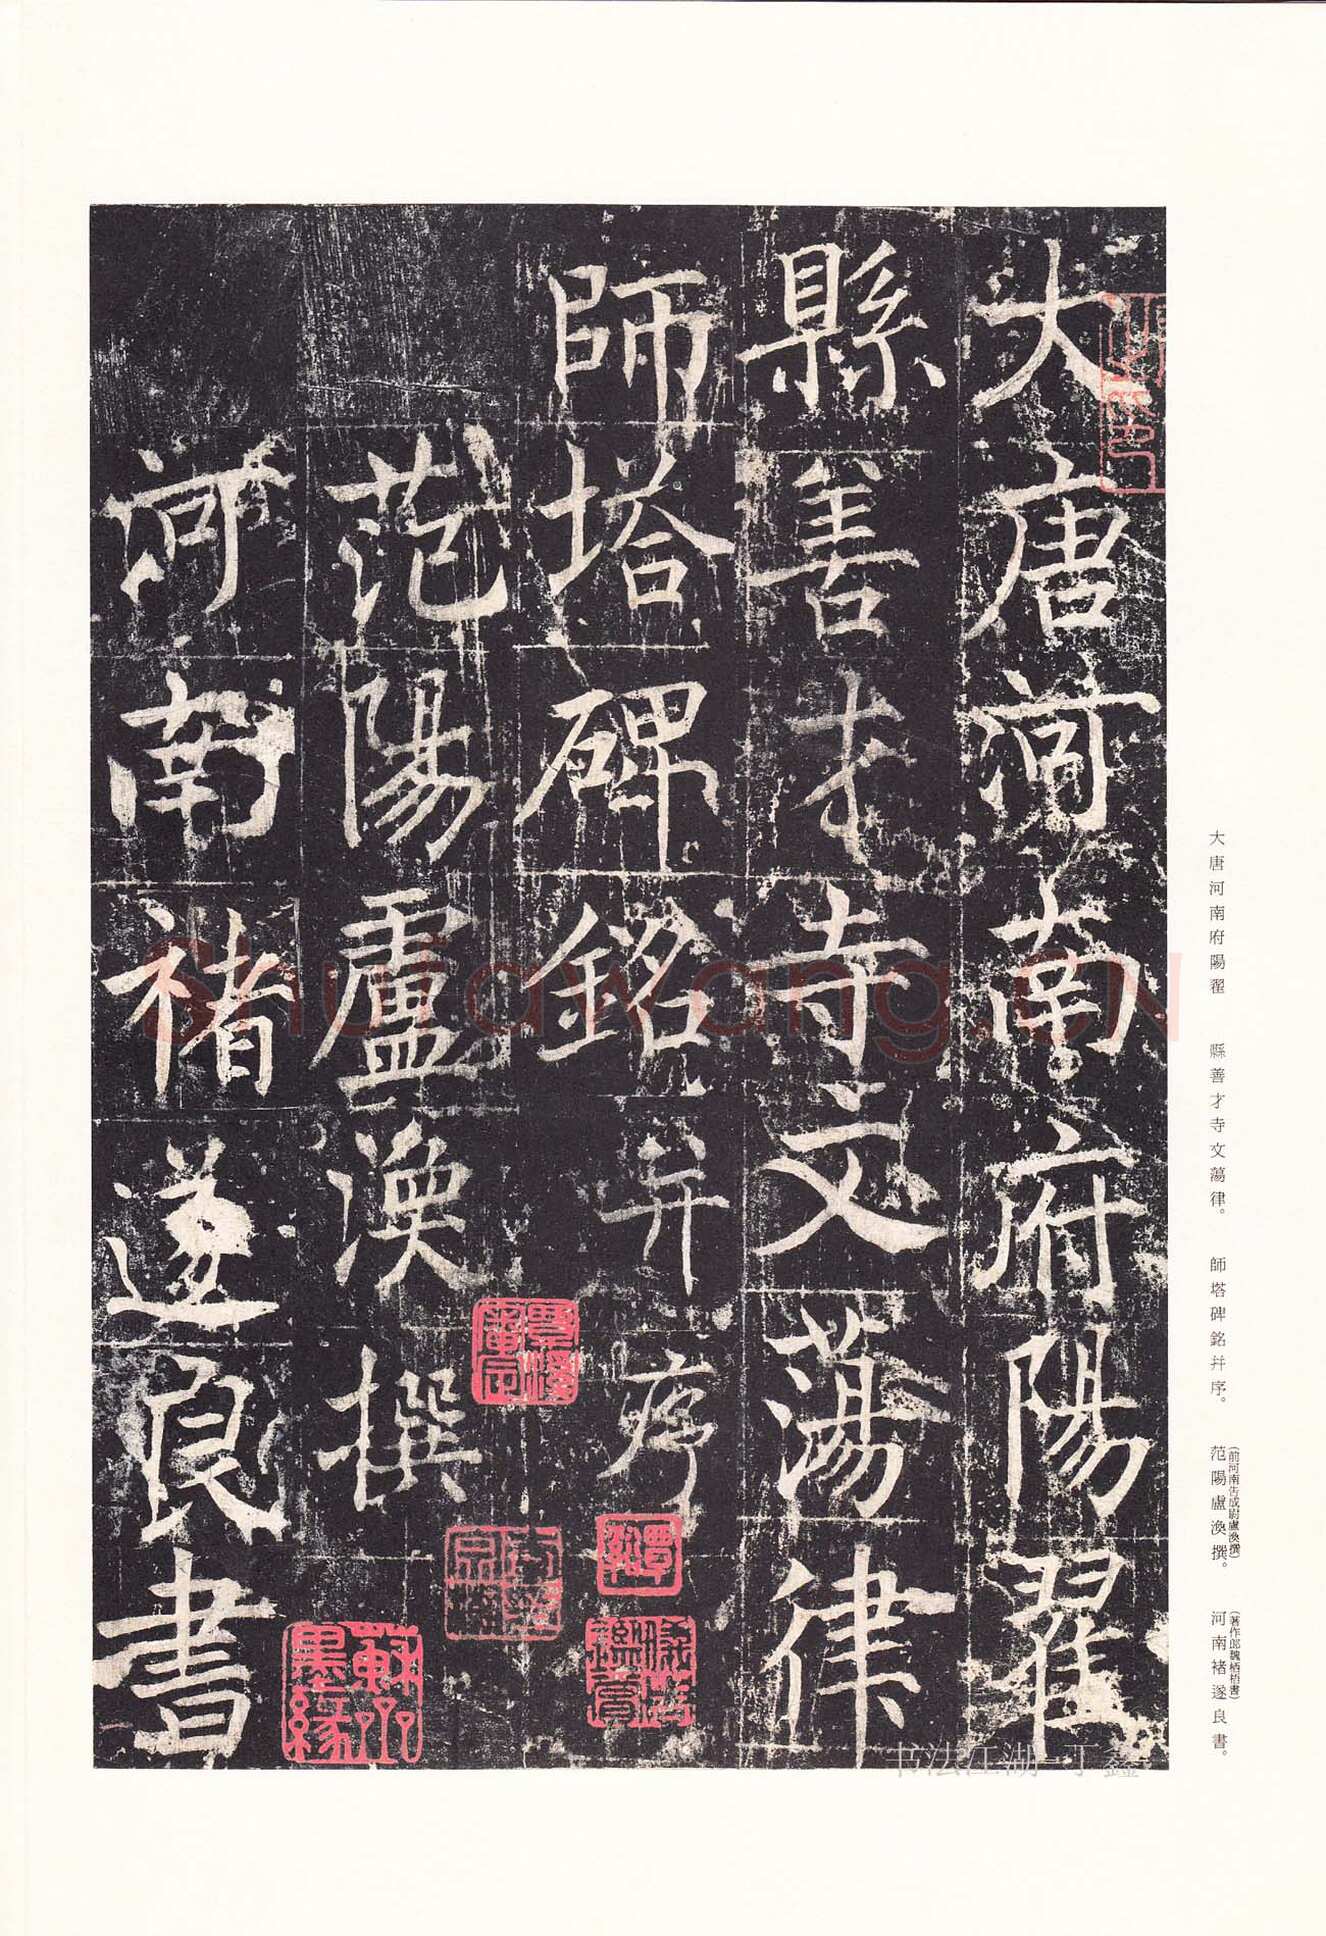 大唐河南府陽翟
縣善才寺文蕩律
師塔碑銘并序
范陽盧渙撰
河南褚遂良書
大唐河南府陽翟　縣善才寺文蕩律。　師塔碑銘并序。　范陽盧渙撰。　河南褚遂良書。
(前河南告成尉盧渙撰)
(著作郎魏栖梧書)
覃溪審定
蘇齋墨緣
Shufawang.CN
书法江湖-丁鑫